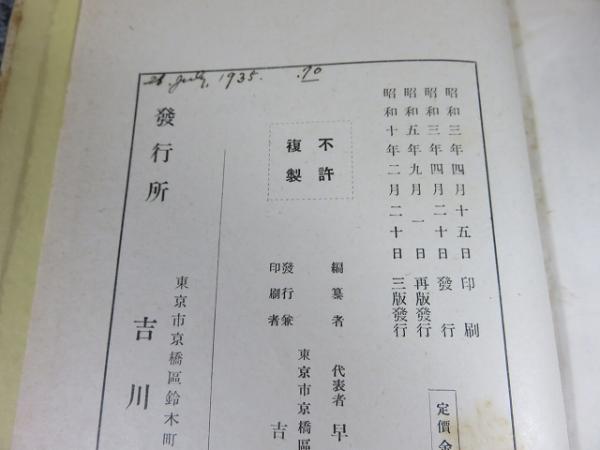 26 July, 1935. .70
昭和三年四月十五日印刷
昭和三年四月二十日發行
昭和五年九月一日再版發行
昭和十年二月二十日三版發行
定價金
不許
複製
編纂者 代表者 早
發行兼
印刷者
東京市京橋區
吉
東京市京橋區鈴木町
發行所 吉川